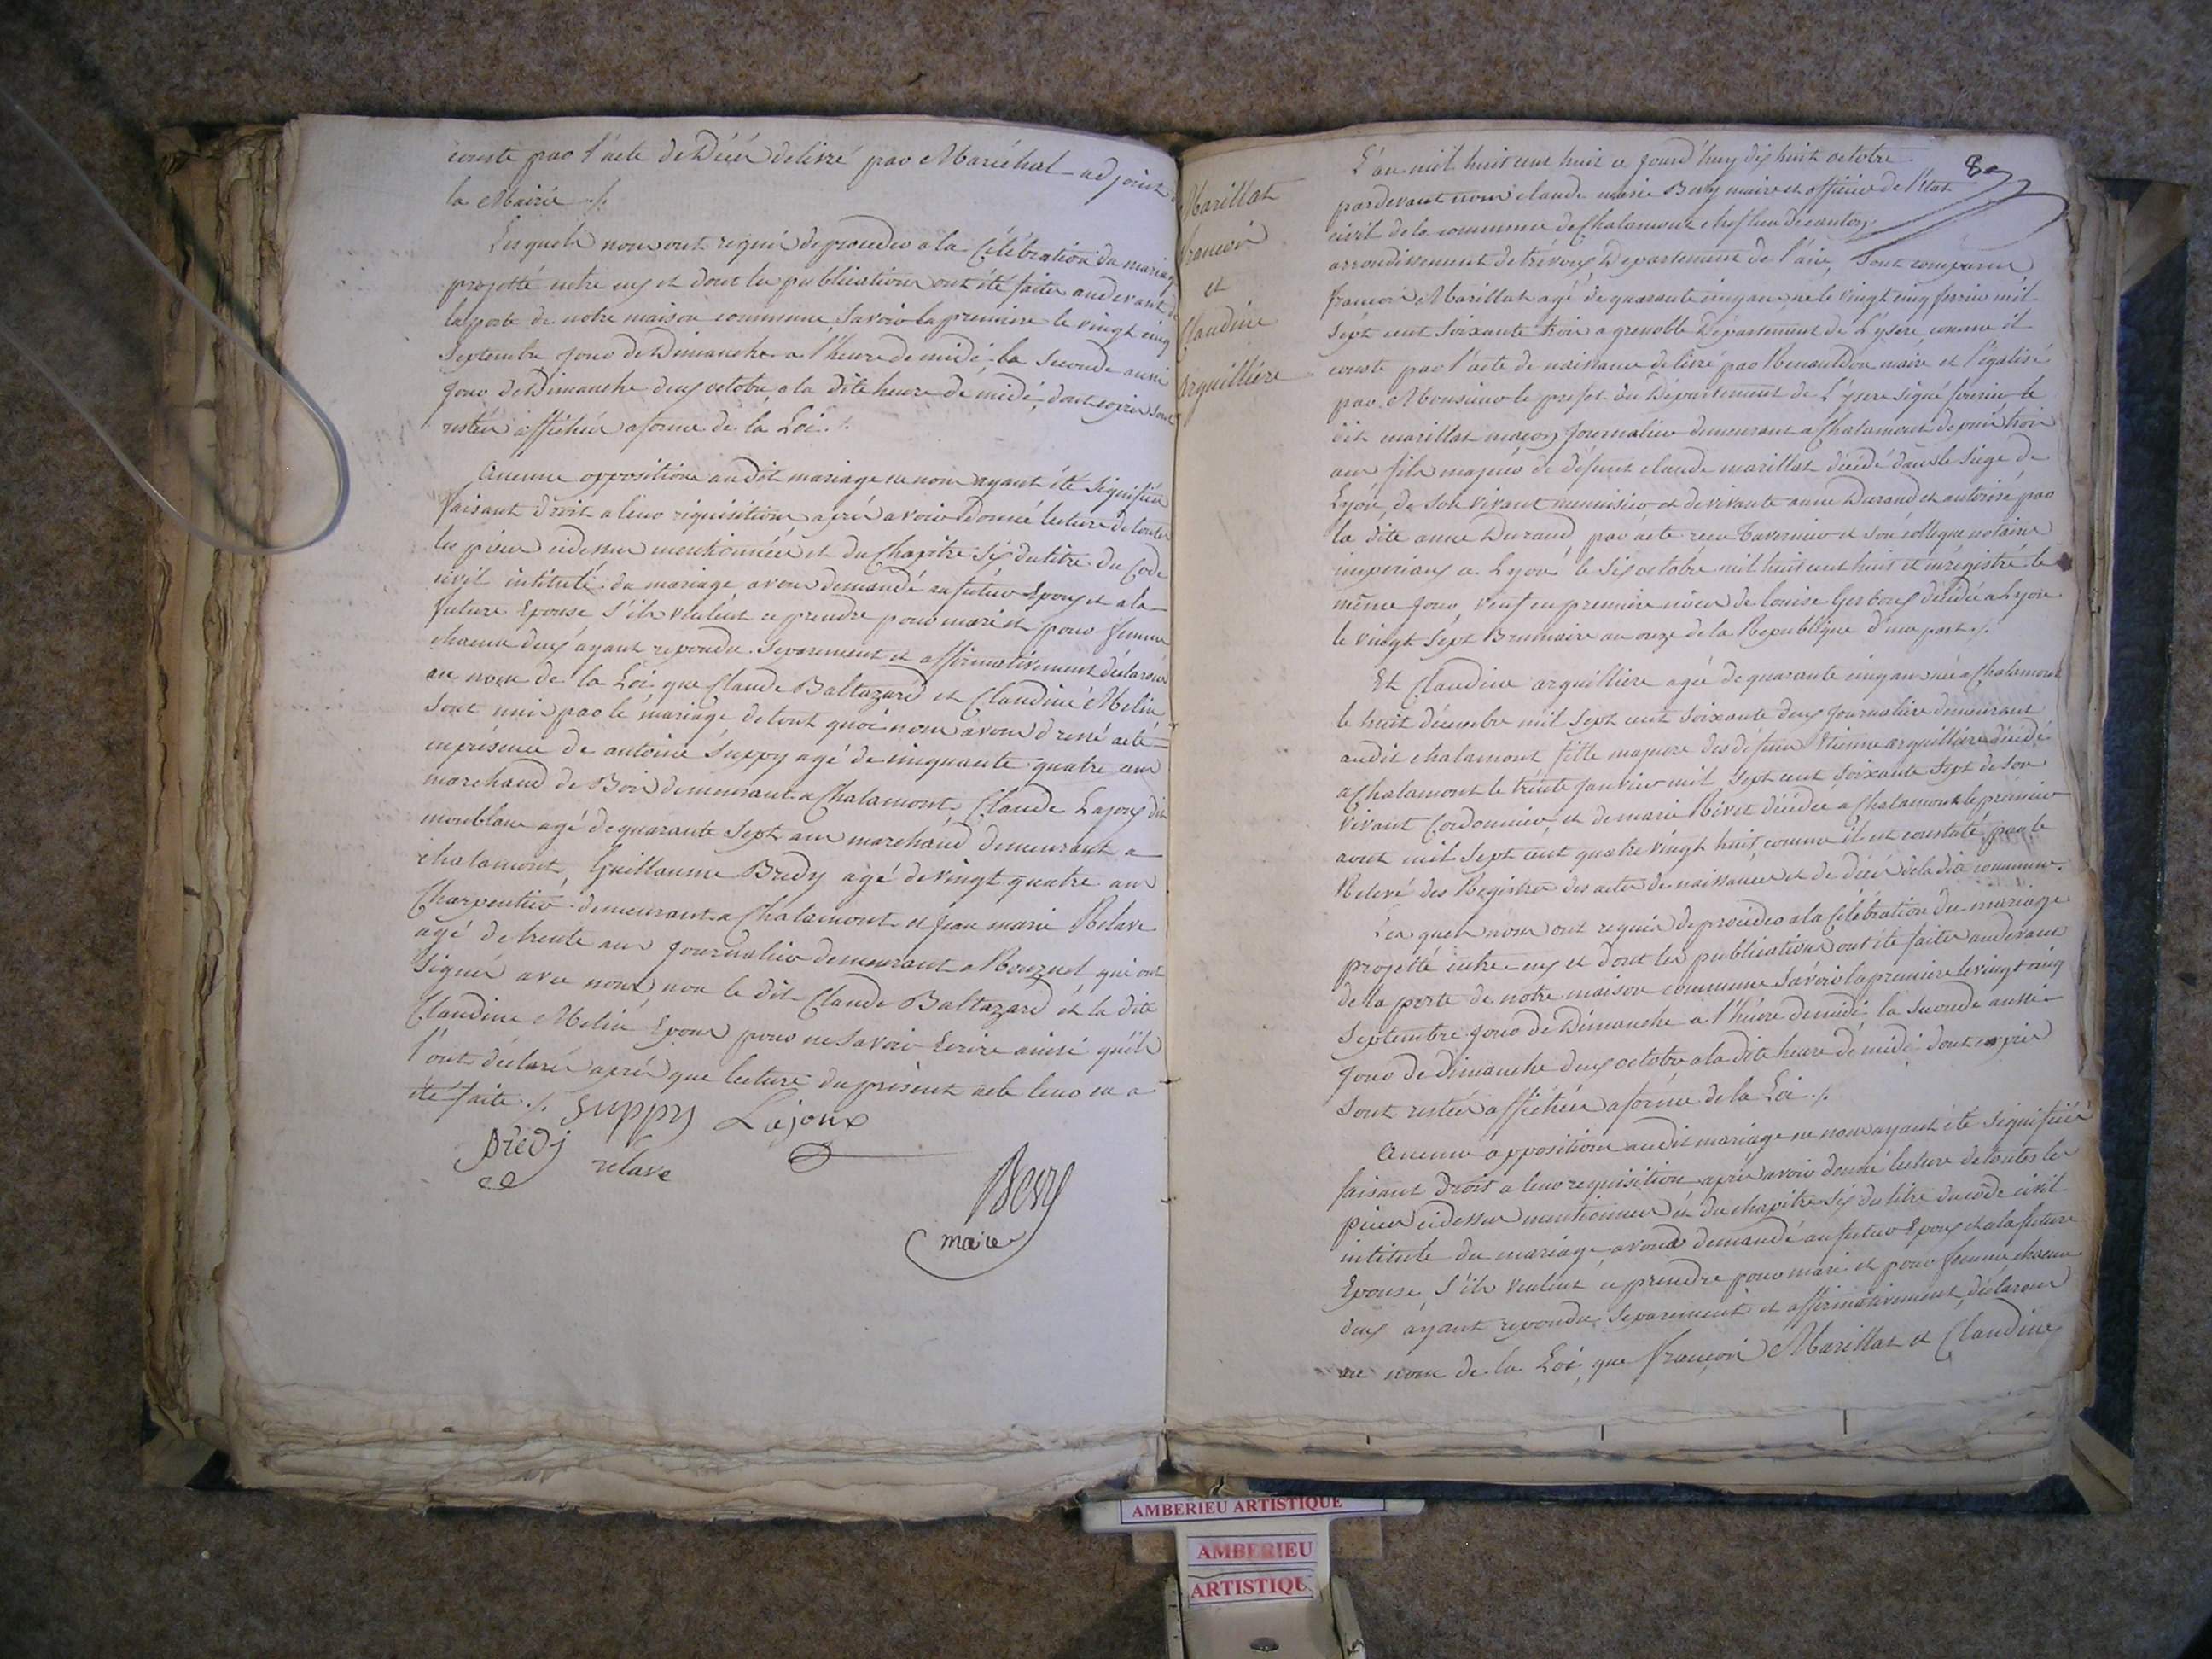 conste par l'acte de Décés delivré par Maréchal adjoint
la Mairie ./.
Lesquels nous ont requis de proceder a la Célébration du mariage
projetté entre eux et dont les publications ont été faites audevant de
la porte de notre maison commune, savoir la premiere le vingt cinq
Septembre jour de Dimanche a l'heure de midi, la Seconde aussi
jour de Dimanche deux octobre, a la dite heure de midi, dont copies sont
restées affichées a forme de la Loi ./.
Aucune opposition audit mariage ne nous ayant été signifiée
faisant droit a leur réquisition, après avoir donné lecture de toutes
les pieces cidessus mentionnées et du Chapitre six du titre du Code
civil intitulé du mariage avons demandé au futur Epoux et a la
future Epouse s'ils veulent se prendre pour mari et pour femme
chacun deux ayant repondu Séparement et affirmativement déclarons
au nom de la Loi que Claude Baltazard et Claudine Melin
Sont unis par le mariage de tout quoi nous avons dressé acte
en présence de antoine Suppy agé de cinquante quatre ans
marchand de Bois demeurant a Chalamont, Claude Lajoux dit
monblanc agé de quarante Sept ans marchand demeurant a
chalamont, Guillaume Bredy agé de vingt quatre ans
Charpentier demeurant a Chalamont et Jean marie Relave
agé de trente ans journalier demeurant a Ronzuel, qui ont
Signés avec nous, non le dit Claude Baltazard et la dite
Claudine Melin Epoux pour ne savoir Ecrire ainsi qu'ils
l'ont déclaré après que lecture du présent acte leur en a
été faite ./. Suppy Lajoux
Bredy relave
Bery
maire
Marillat
francois
et
Claudine
Arguillière
8
L'an mil huit cent huit ce jourd'huy dix huit octobre
pardevant nous claude marie Bery maire et officier de l'état
civil de la commune de Chalamont chef lieu de canton,
arrondissement de trévoux, Departement de l'ain, Sont comparus
francois Marillat agé de quarante cinq ans né le vingt cinq fevrier mil
Sept cent Soixante trois a grenoble Département de L'ysere, comme il
conste par l'acte de naissance delivré par Renauldon maire et l'égalisé
par Monsieur le prefet du Département de L'ysere signé fourier, le
dit marillat maçon journalier demeurant a Chalamont depuis trois
ans fils majeur de défunt claude marillat décédé dans le Siege de
Lyon, de Son vivant menuisier et de vivante anne Durand et autorisé par
la dite anne Durand par acte recu Tavernier et son collegue notaires
impériaux a Lyon le six octobre mil huit cent huit et enrégistré le
même jour, veuf en premiere noces de louise Gerboux décédée a Lyon
le vingt Sept Brumaire an onze de la Republique d'une part ./.
Et Claudine arguilliere agée de quarante cinq ans née a Chalamont
le huit décembre mil Sept cent Soixante deux journaliere demeurant
audit chalamont fille majeure des défunts Etienne arguilliere décédé
a Chalamont le trente Janvier mil Sept cent Soixante Sept de Son
vivant Cordonnier, et de marie Rivet décédée a Chalamont le premier
aout mil Sept cent quatre vingt huit, comme il est constaté par le
Relevé des Registres des actes de naissances et de décés de la dite commune.
Les quels nous ont requis de procéder a la Célébration du mariage
projetté entre eux et dont les publications ont été faites audevant
de la porte de notre maison commune savoir la premiere le vingt cinq
Septembre jour de Dimanche a l'heure de midi la Seconde aussi
jour de Dimanche deux octobre a la dite heure de midi dont copies
Sont restées affichées a forme de la Loi ./.
Aucune opposition audit mariage ne nous ayant été signifiée
faisant droit a leur requisition après avoir donné lecture de toutes les
pieces cidessus mentionnées et du chapitre six du titre du code civil
intitulé du mariage, avons demandé au futur Epoux et a la future
Epouse, S'ils veulent se prendre pour mari et pour femme chacun
deux ayant repondu Séparement et affirmativement, déclarons
au nom de la Loi, que francois Marillat et Claudine
AMBERIEU ARTISTIQUE
AMBERIEU
ARTISTIQU